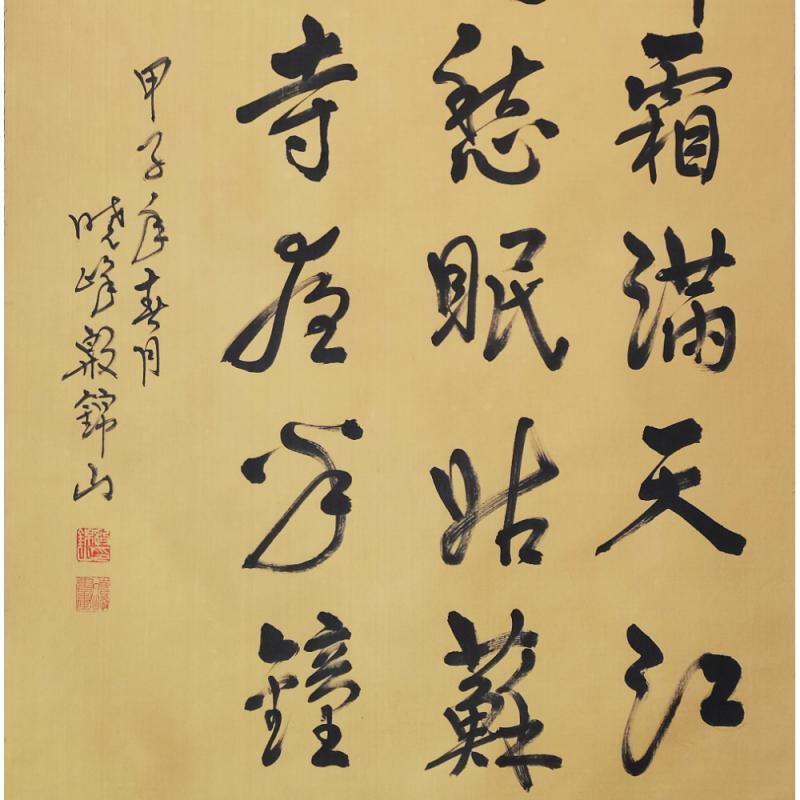 霜滿天江
愁眠姑蘇
寺夜半鐘
甲子年春月
曉峰錦山